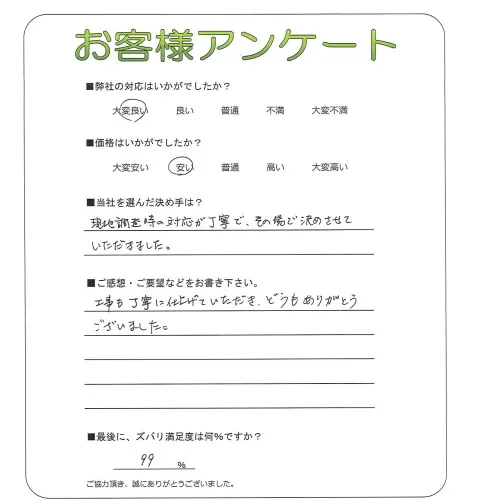 お客様アンケート
■弊社の対応はいかがでしたか？
大変良い 良い 普通 不満 大変不満
■価格はいかがでしたか？
大変安い 安い 普通 高い 大変高い
■当社を選んだ決め手は？
現地調査時の対応が丁寧で、その場で決めさせて
いただきました。
■ご感想・ご要望などをお書き下さい。
工事も丁寧に仕上げていただき、どうもありがとう
ございました。
■最後に、ズバリ満足度は何%ですか？
99 %
ご協力頂き、誠にありがとうございました。